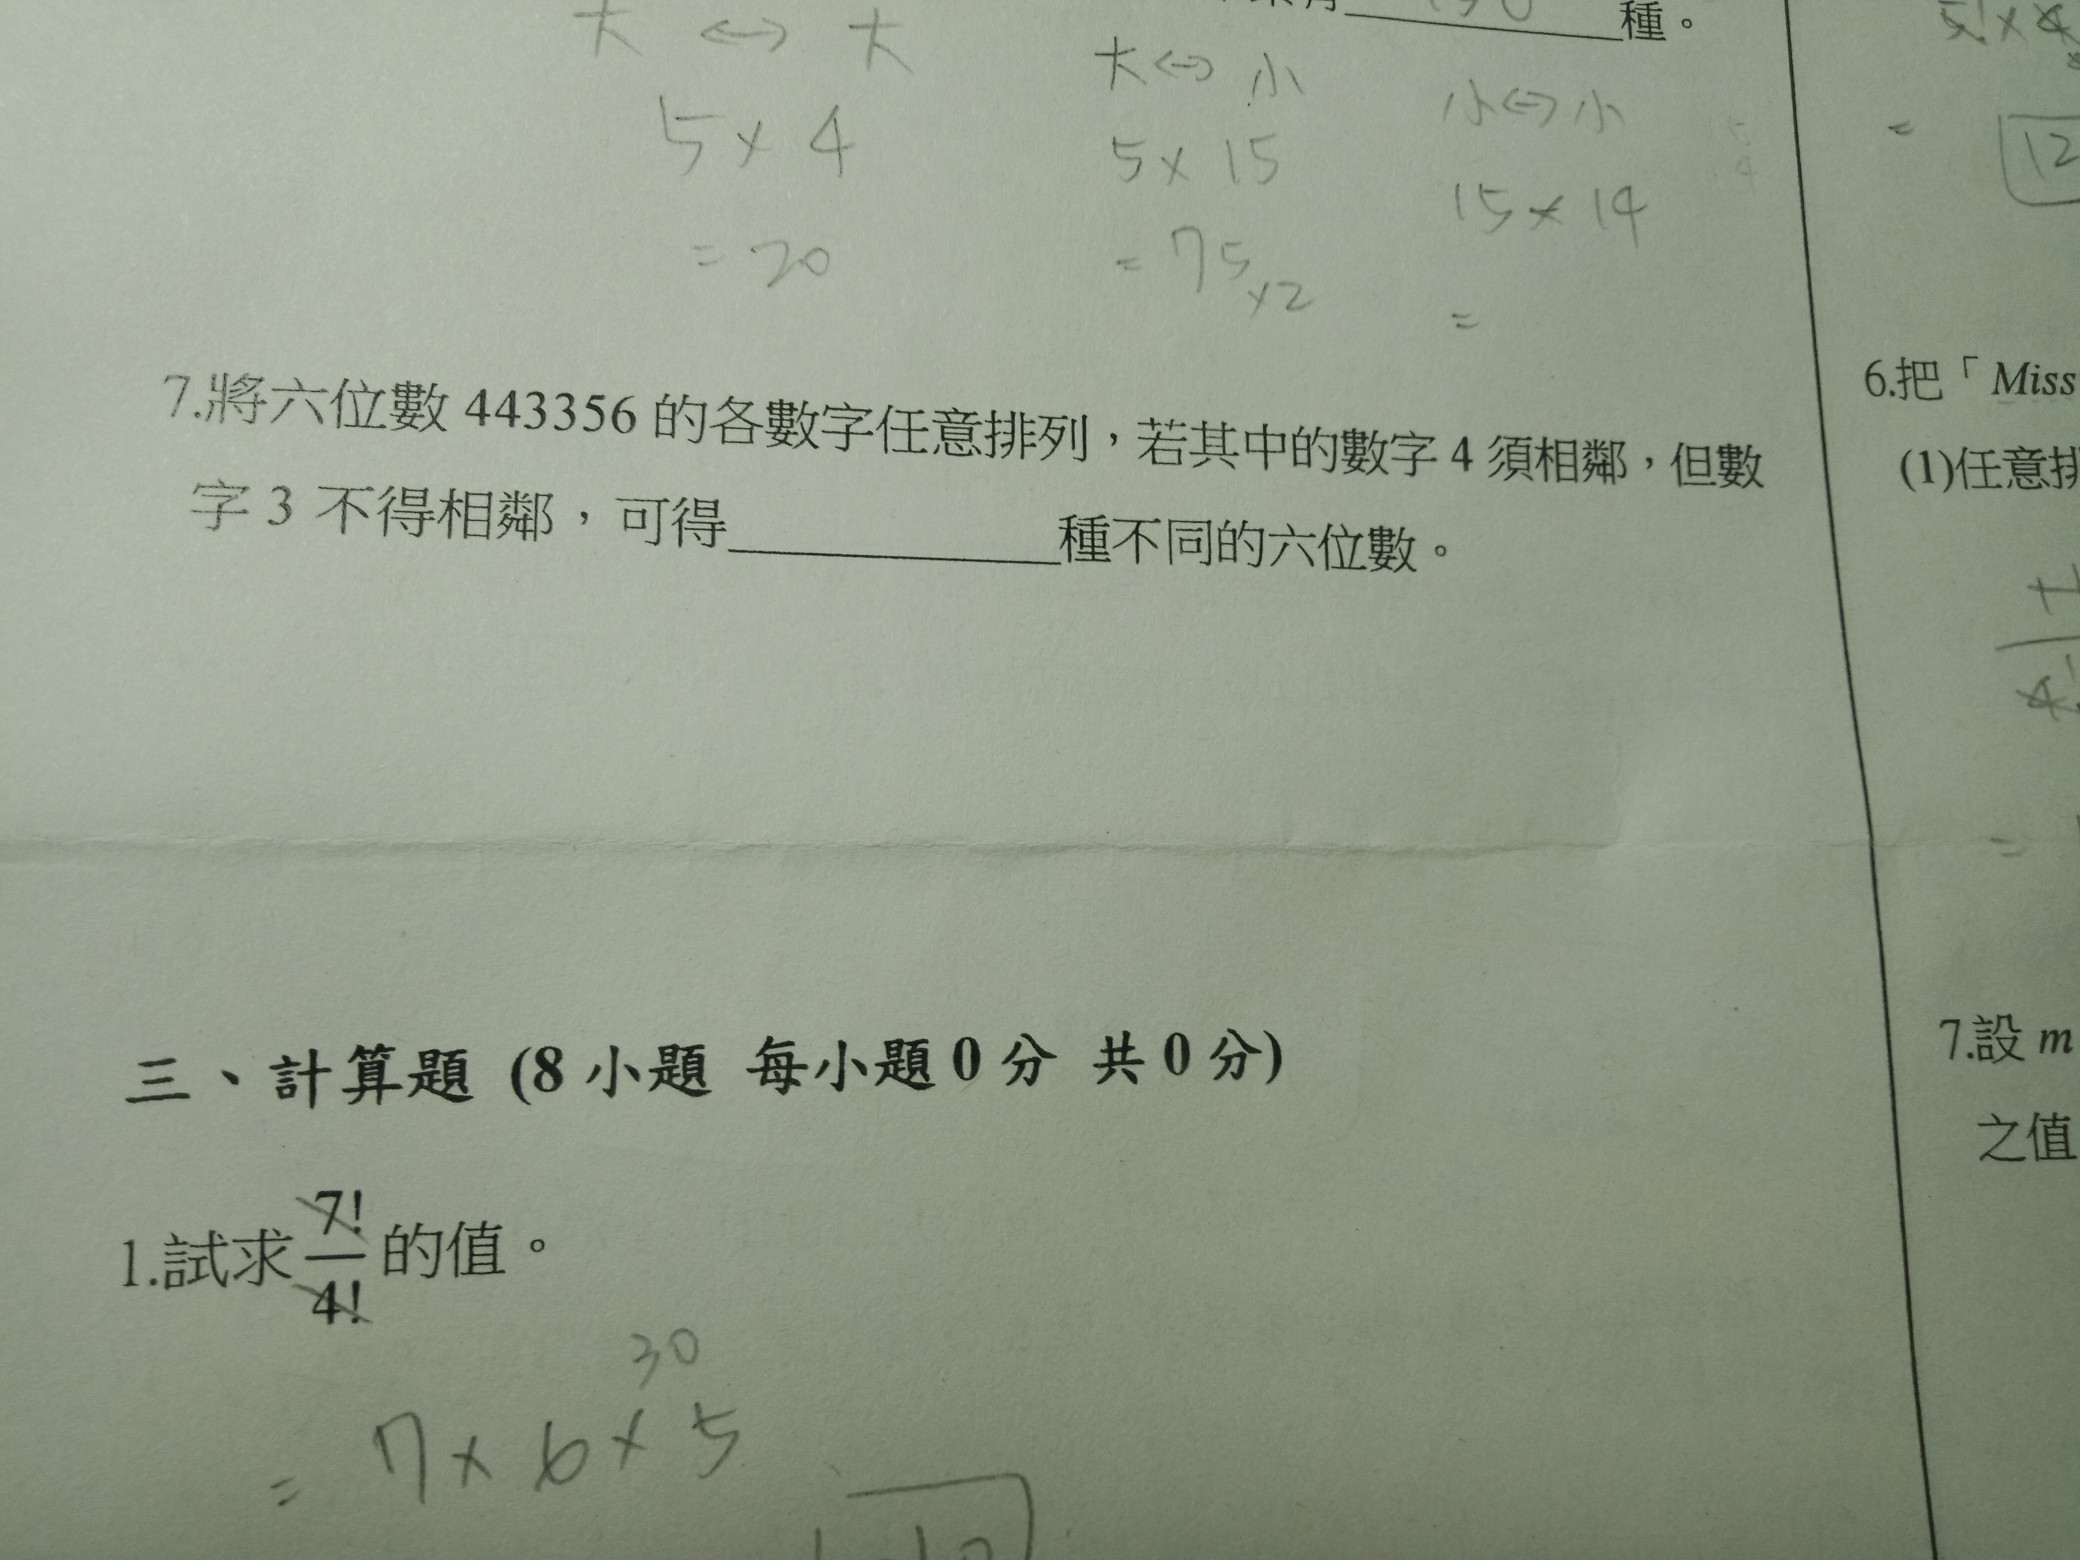 種。
大 ↔ 大
大 ↔ 小
小 ↔ 小
5 × 4
5 × 15
15 × 14
= 20
= 75 ×2
=
7.將六位數 443356 的各數字任意排列，若其中的數字 4 須相鄰，但數
字 3 不得相鄰，可得____________種不同的六位數。
三、計算題 (8 小題 每小題 0 分 共 0 分)
1.試求 7!/4! 的值。
30
= 7 × 6 × 5
5! × 4
=
12
6.把「Miss
(1)任意排
=
7.設 m
之值